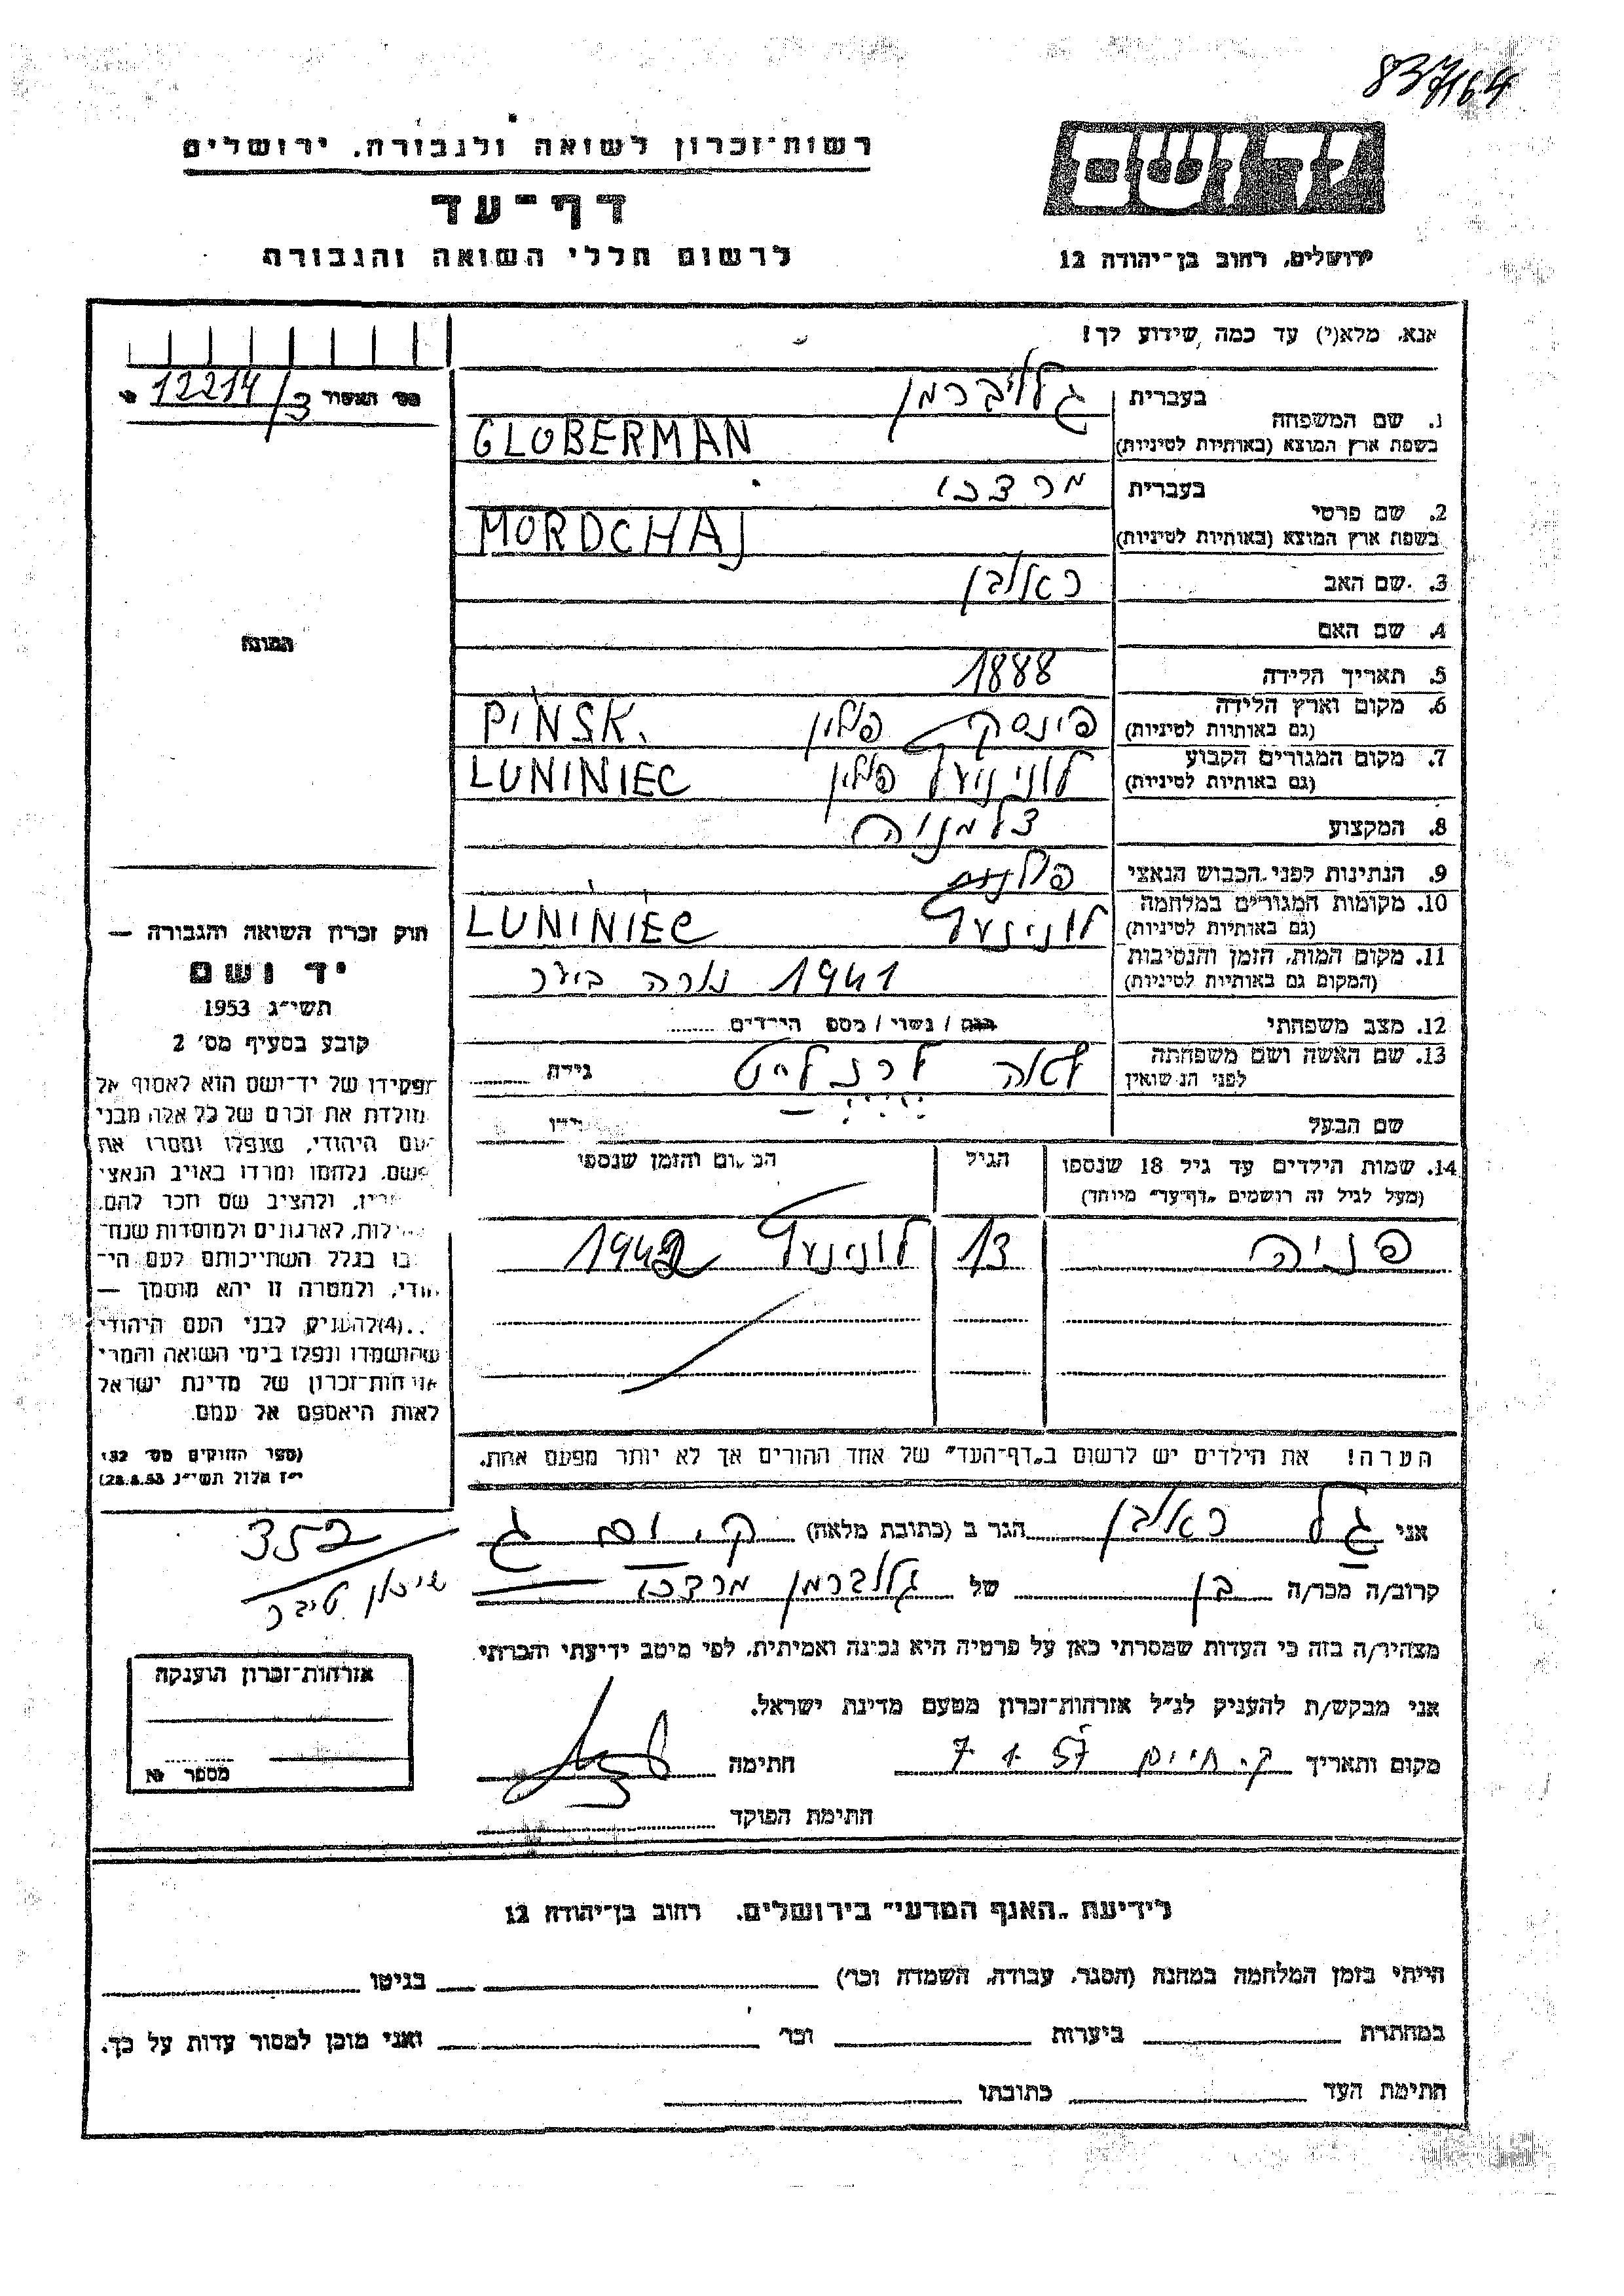 837164
רשות־זכרון לשואה ולגבורה, ירושלים
יד ושם
דף־עד
לרשום חללי השואה והגבורה
ירושלים, רחוב בן־יהודה 12
אנא, מלא(י) עד כמה שידוע לך!
12214/3
1. שם המשפחה בעברית גלוברמן
בשפת ארץ המוצא (באותיות לטיניות) GLOBERMAN
2. שם פרטי בעברית מרדכי
בשפת ארץ המוצא (באותיות לטיניות) MORDCHAJ
3. שם האב
4. שם האם
5. תאריך הלידה 1888
6. מקום וארץ הלידה (גם באותיות לטיניות) פינסק פולין PINSK.
7. מקום המגורים הקבוע (גם באותיות לטיניות) לונינץ פולין LUNINIEC
8. המקצוע
9. הנתינות לפני הכבוש הנאצי פולנית
10. מקומות המגורים במלחמה (גם באותיות לטיניות) לונינץ LUNINIEC
11. מקום המות, הזמן והנסיבות (המקום גם באותיות לטיניות) 1941 נורה ביער
12. מצב משפחתי רווק / נשוי / מספר הילדים
13. שם האשה ושם משפחתה לפני הנשואין לאה גילה
שם הבעל
14. שמות הילדים עד גיל 18 שנספו הגיל המקום והזמן שנספו
(מעל לגיל זה רושמים "דף־עד" מיוחד)
פניה 13 לונינץ 1942
הערה! את הילדים יש לרשום ב"דף־העד" של אחד ההורים אך לא יותר מפעם אחת.
התמונה
חוק זכרון השואה והגבורה —
יד ושם
תשי״ג 1953
קובע בסעיף מס׳ 2
תפקידו של יד־ושם הוא לאסוף אל
מולדת את זכרם של כל אלה מבני
עם היהודי, שנפלו ומסרו את
נפשם, נלחמו ומרדו באויב הנאצי
ולהציב שם וזכר להם,
לארגונים ולמוסדות שנח־
בו בגלל השתייכותם לעם הי־
הודי, ולמטרה זו יהא מוסמך —
..(4)להעניק לבני העם היהודי
שהושמדו ונפלו בימי השואה והמרי
אזרחות־זכרון של מדינת ישראל
לאות היאספם אל עמם.
(ספר החוקים מס׳ 132
י״ז אלול תשי״ג 28.8.53)
352
אני גל הגר ב (כתובת מלאה) ק. ים ג
קרוב/ה מכר/ה בן של גלוברמן מרדכי
מצהיר/ה בזה כי העדות שמסרתי כאן על פרטיה היא נכונה ואמיתית, לפי מיטב ידיעתי והכרתי
אני מבקש/ת להעניק לנ״ל אזרחות־זכרון מטעם מדינת ישראל.
מקום ותאריך ק. חיים 7.1.57 חתימה
חתימת הפוקד
אזרחות־זכרון הוענקה
מספר
לידיעת "האגף המדעי" בירושלים, רחוב בן־יהודה 12
הייתי בזמן המלחמה במחנה (הסגר, עבודה, השמדה וכו׳) בגיטו
במחתרת ביערות וכו׳ ואני מוכן למסור עדות על כך.
חתימת העד כתובתו